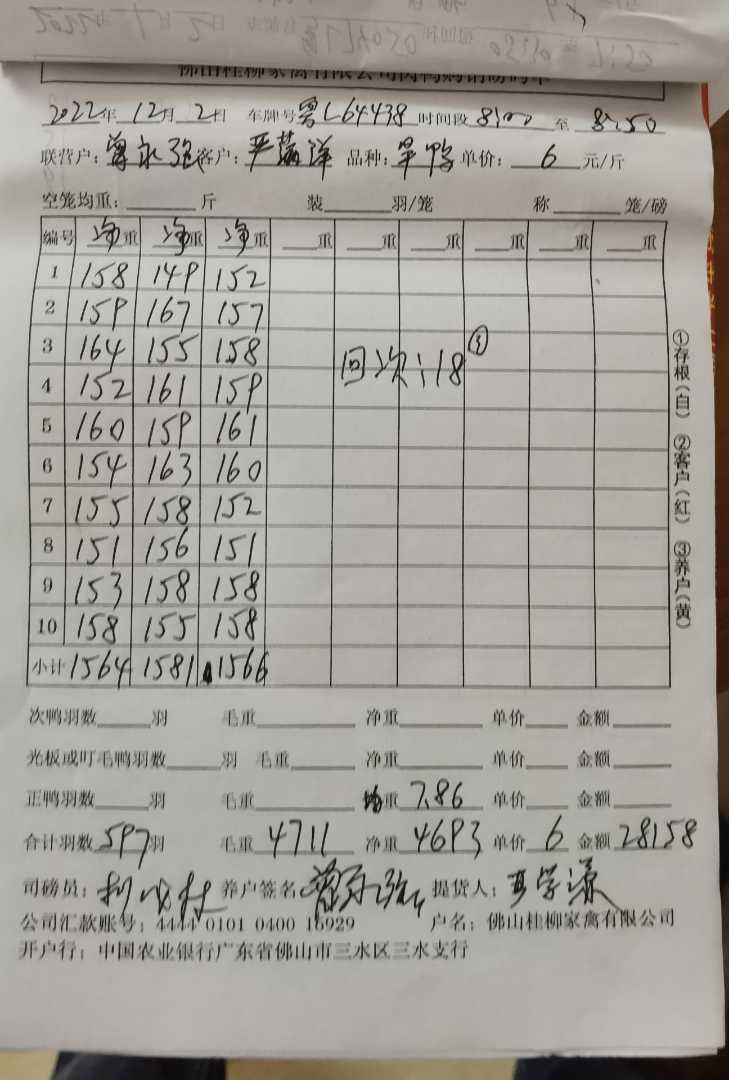 佛山桂柳家禽有限公司肉鸭购销磅码单
2022年 12月 2日 车牌号粤L64438 时间段 8:00 至 8:50
联营户：曾永强 客户： 品种：旱鸭 单价： 6 元/斤
空笼均重： 斤 装 羽/笼 称 笼/磅
编号 净重 净重 净重 重 重 重 重 重 重
1 158 149 152
2 159 167 157
3 164 155 158
回次：18 ①
4 152 161 159
5 160 159 161
6 154 163 160
7 155 158 152
8 151 156 151
9 153 158 158
10 158 155 158
小计 1564 1581 1566
①存根(白) ②客户(红) ③养户(黄)
次鸭羽数 羽 毛重 净重 单价 金额
光板或叮毛鸭羽数 羽 毛重 净重 单价 金额
正鸭羽数 羽 毛重 均重 7.86 单价 金额
合计羽数 597羽 毛重 4711 净重 4693 单价 6 金额 28158
司磅员： 养户签名 提货人：
公司汇款账号：4444 0101 0400 16929 户名：佛山桂柳家禽有限公司
开户行：中国农业银行广东省佛山市三水区三水支行